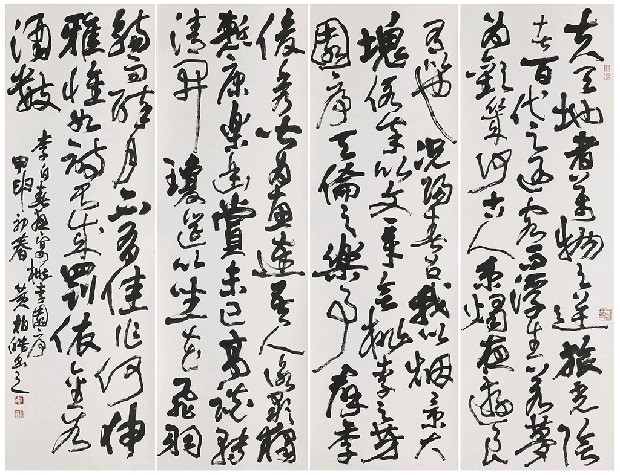 夫天地者萬物之逆旅光陰
者百代之過客而浮生若夢
為歡幾何古人秉燭夜遊良
有以也況陽春召我以煙景大
塊假我以文章會桃李之芳
園序天倫之樂事群季
俊秀皆為惠連吾人詠歌獨
慙康樂幽賞未已高談轉
清開瓊筵以坐花飛羽
觴而醉月不有佳作何伸
雅懷如詩不成罰依金谷
酒數
李白春夜宴桃李園序
甲申初春黄柏皓書之